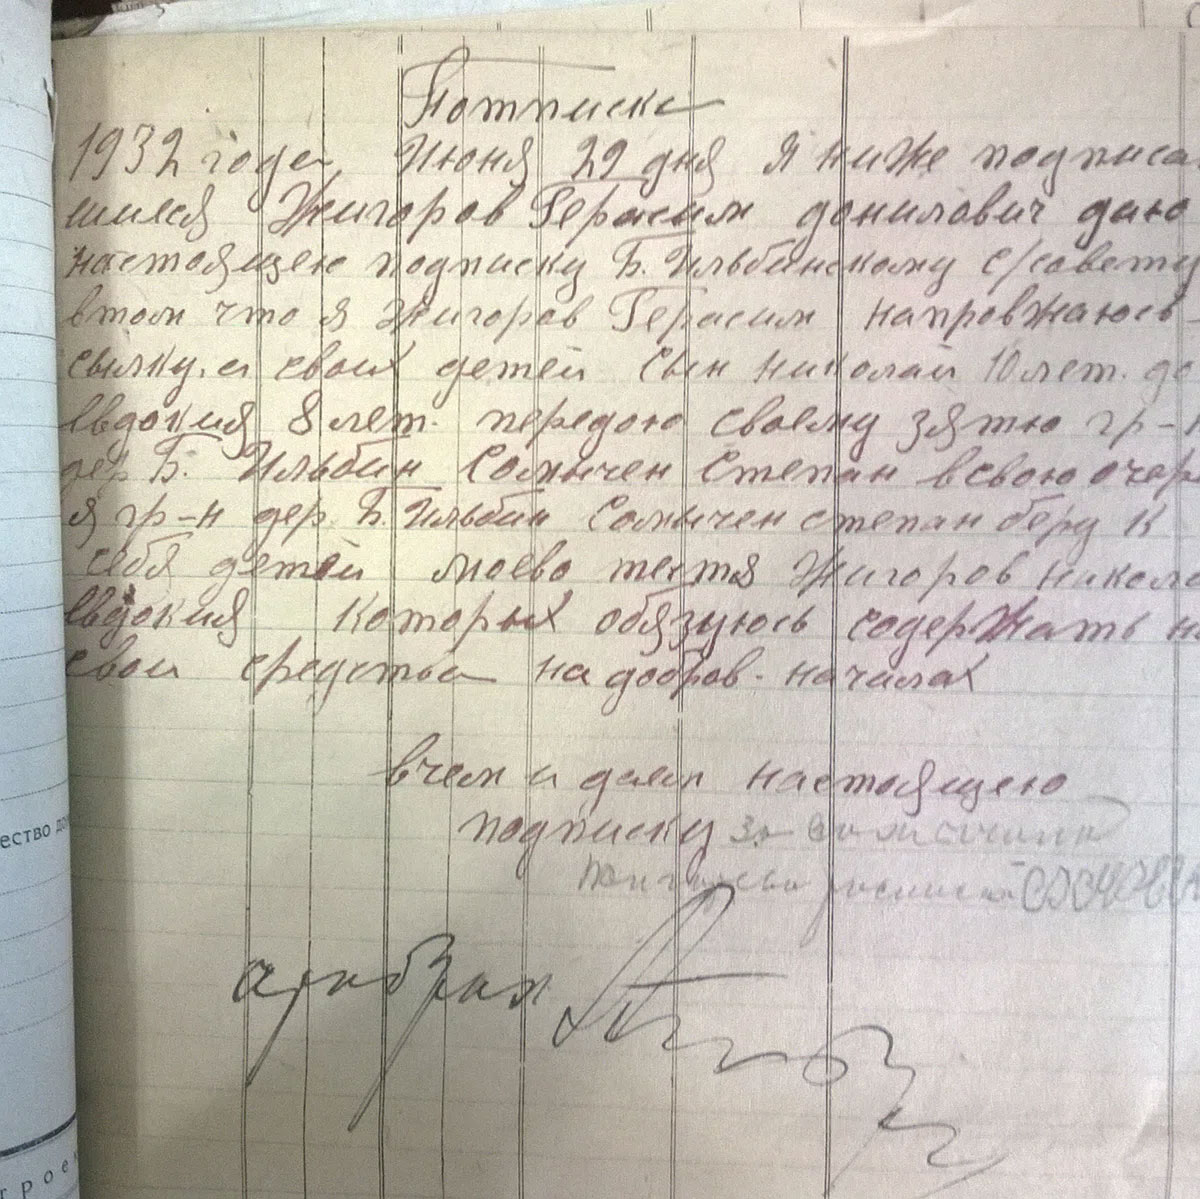 Потписка
1932 года Июня 29 дня я ниже подписа
шиися Жигоров Герасим донилович даю
настоящею подписку Б. Ильбинскому с/совету
втом что я Жигоров Герасим напровжаюсь
сылку. а своих детей сын николай 10 лет. до
Евдокия 8 лет. передою своему зятю гр-н
дер Б. Ильбин Солычен Степан всвою очер
я гр-н дер Б. Ильбин Солычен степан беру к
себя детей моево тестя Жигоров никола
Евдокия которых обязуюсь содержать на
свои средства на добров. началах
вчем и даем настоящею
подписку за
ество до
трое